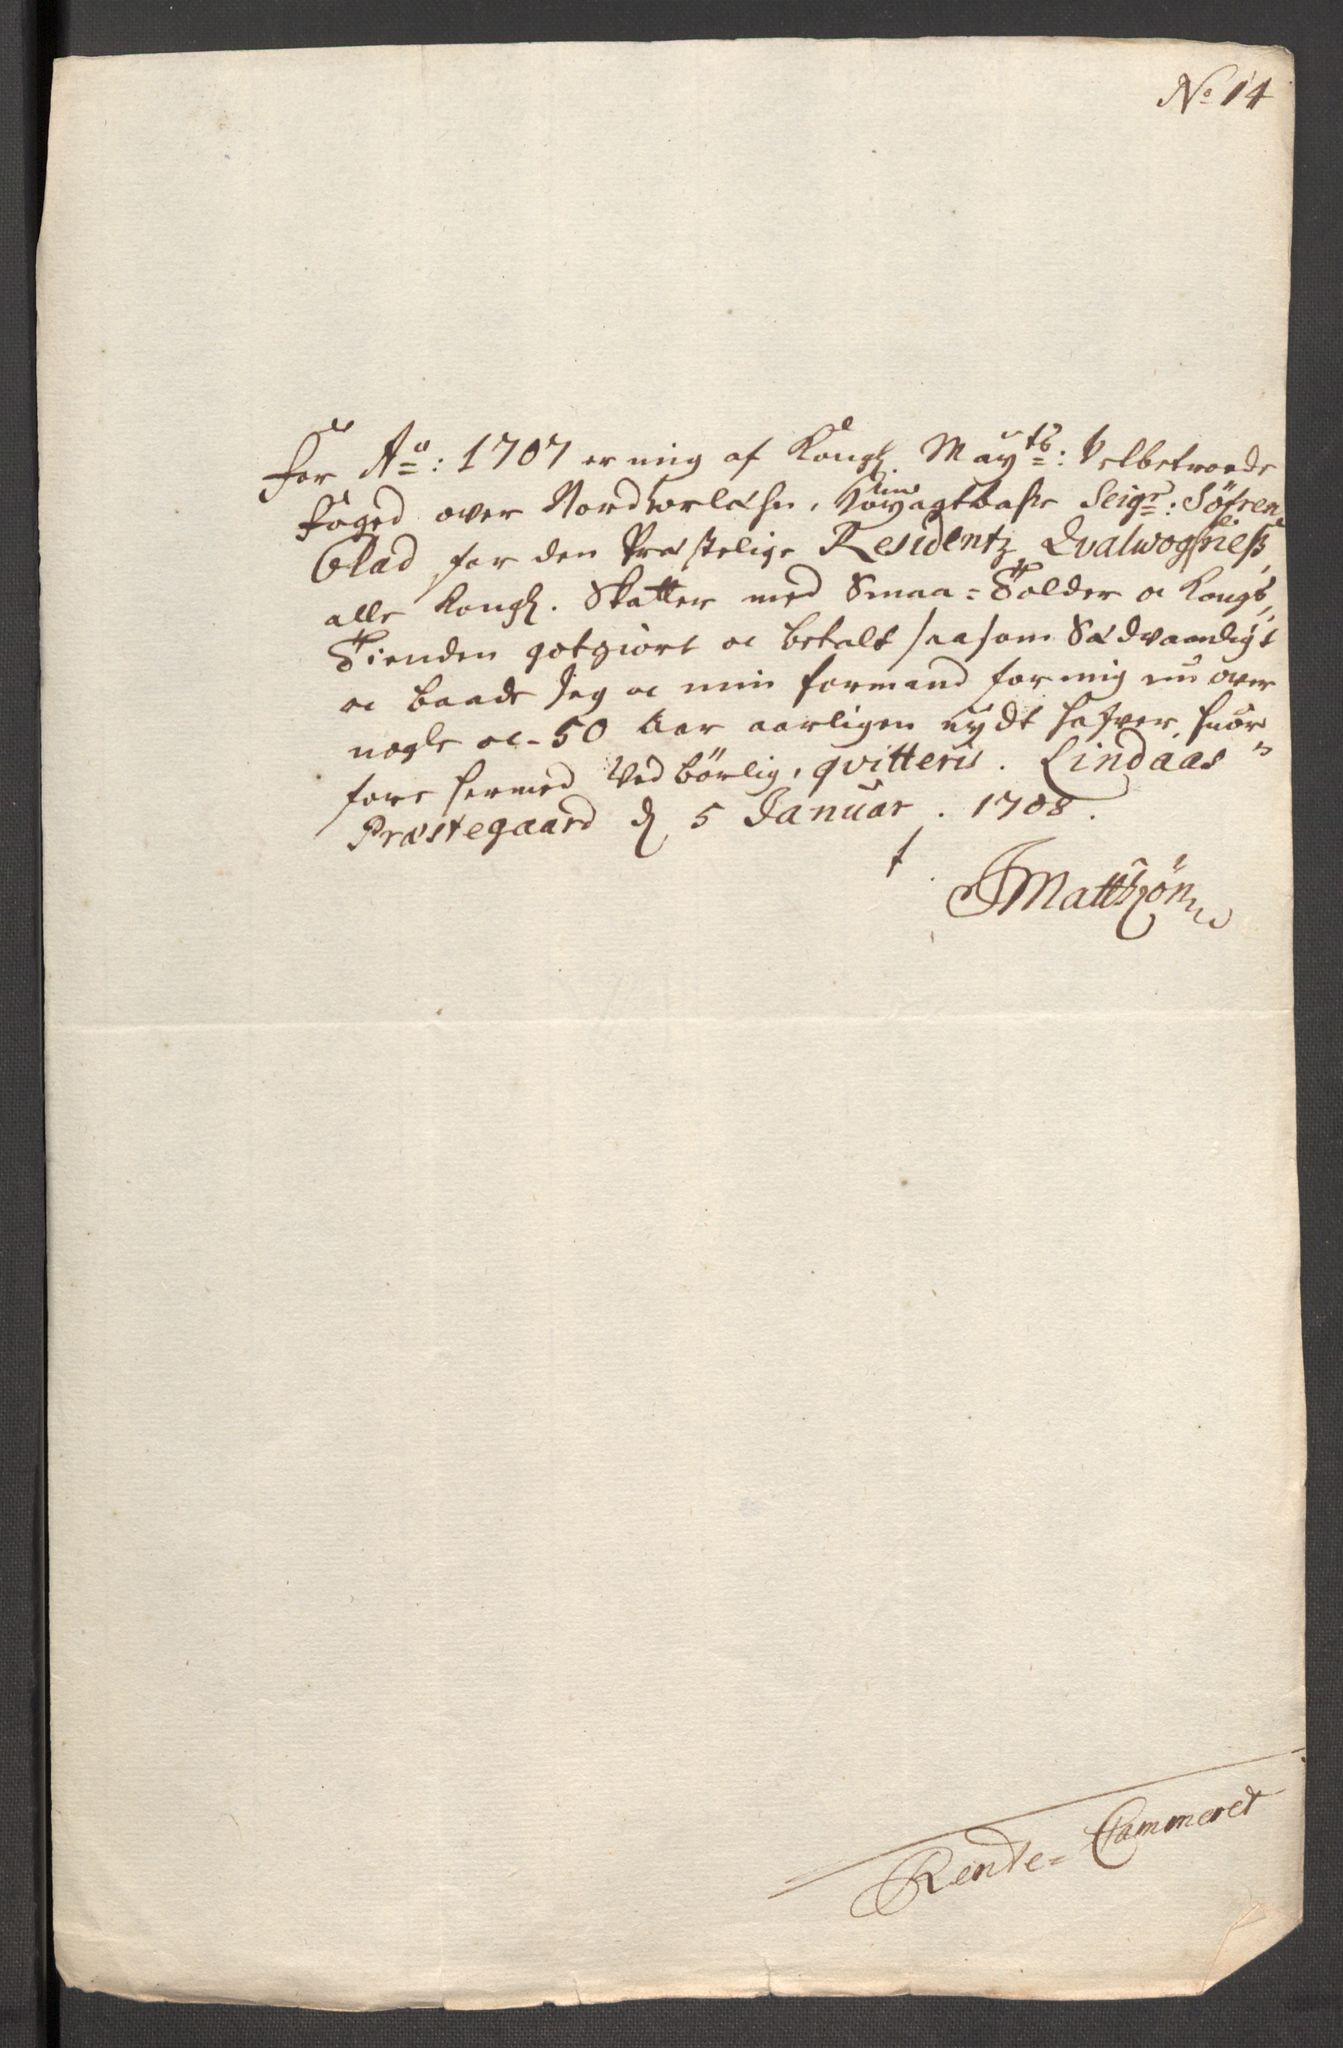 No 14
For Ao: 1707 er mig af Kongl. Mayts: Velbetroede
Foged over Nordhorlehn, Seigr: Söfren
Glad for den Præstelige Residentz Qvalwogneß,
alle Kongl. Skatter med Smaa=Tolder oc Kongs,,
Tienden gotgiort oc betalt saasom Sædvaanligt
oc baade Jeg oc min formand for mig nu over
nogle oc-50 Aar aarligen nydt hafver, huor
fore hermed Ved börlig, qvitteris. Lindaas
Præstegaard d 5 Januar. 1708.
Rente=Cammeret